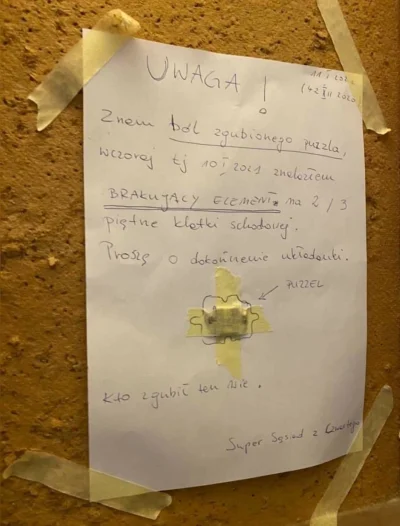 UWAGA !
11 I 2021
(42 XII 2020)
Znam ból zgubionego puzzla,
wczoraj tj 10 I 2021 znalazłem
BRAKUJĄCY ELEMENT na 2/3
piętrze klatki schodowej.
Proszę o dokończenie układanki.
PUZZEL
Kto zgubił ten wie.
Super Sąsiad z Czwartego